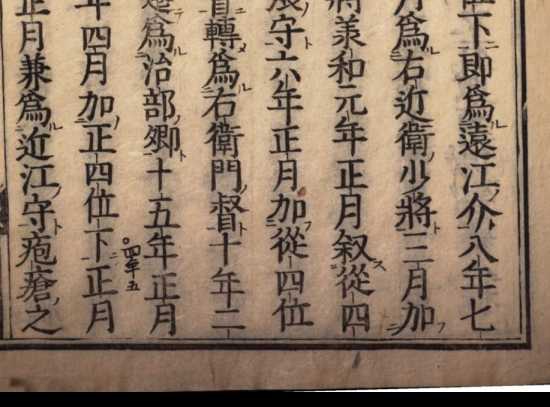 位下即爲遠江介八年七
月爲右近衛少將三月加
將羙和元年正月叙從四
守六八年正月加從四位
轉爲右衛門督十年二
爲治部卿十五年正月
年四月加正四位下正月
正月兼爲近江守疱瘡之